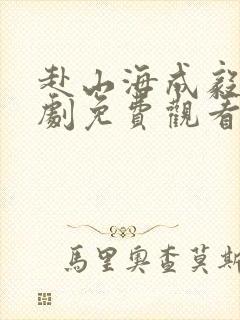 赴山海成毅
劇免費觀看
馬里奧查莫斯